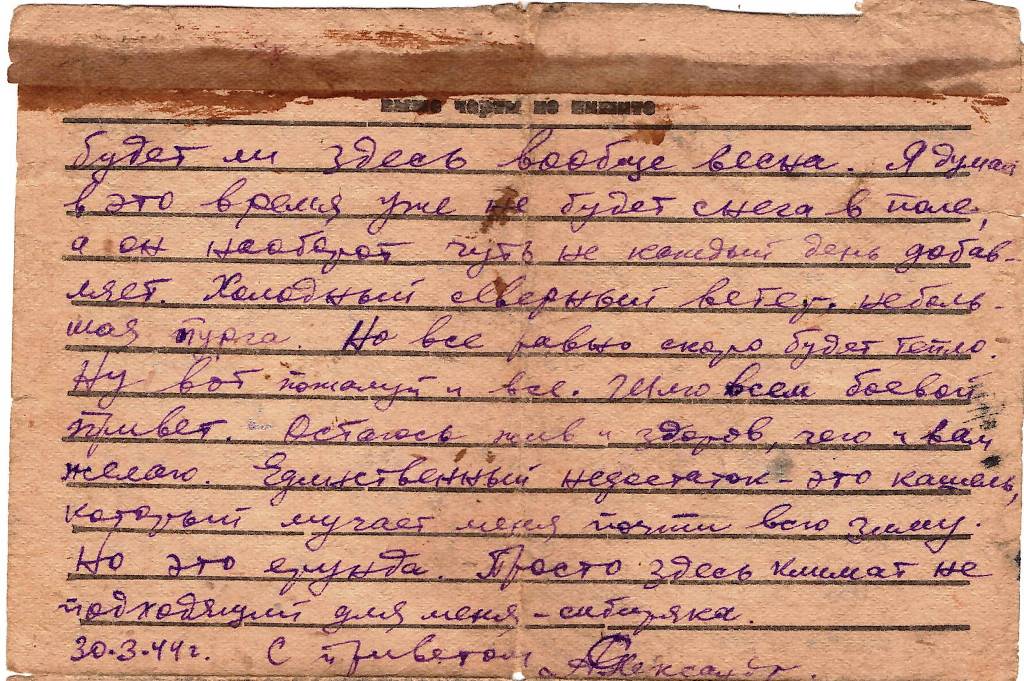 выше черты не пишите
будет ли здесь вообще весна. Я думал
в это время уже не будет снега в поле,
а он наоборот чуть не каждый день добав-
ляет. Холодный северный ветер, неболь-
шая пурга. Но все равно скоро будет тепло.
Ну вот пожалуй и все. Шлю всем боевой
привет. Остаюсь жив и здоров, чего и вам
желаю. Единственный недостаток - это кашель,
который мучает меня почти всю зиму.
Но это ерунда. Просто здесь климат не
подходящий для меня - сибиряка.
30.3.44г. С приветом Александр.